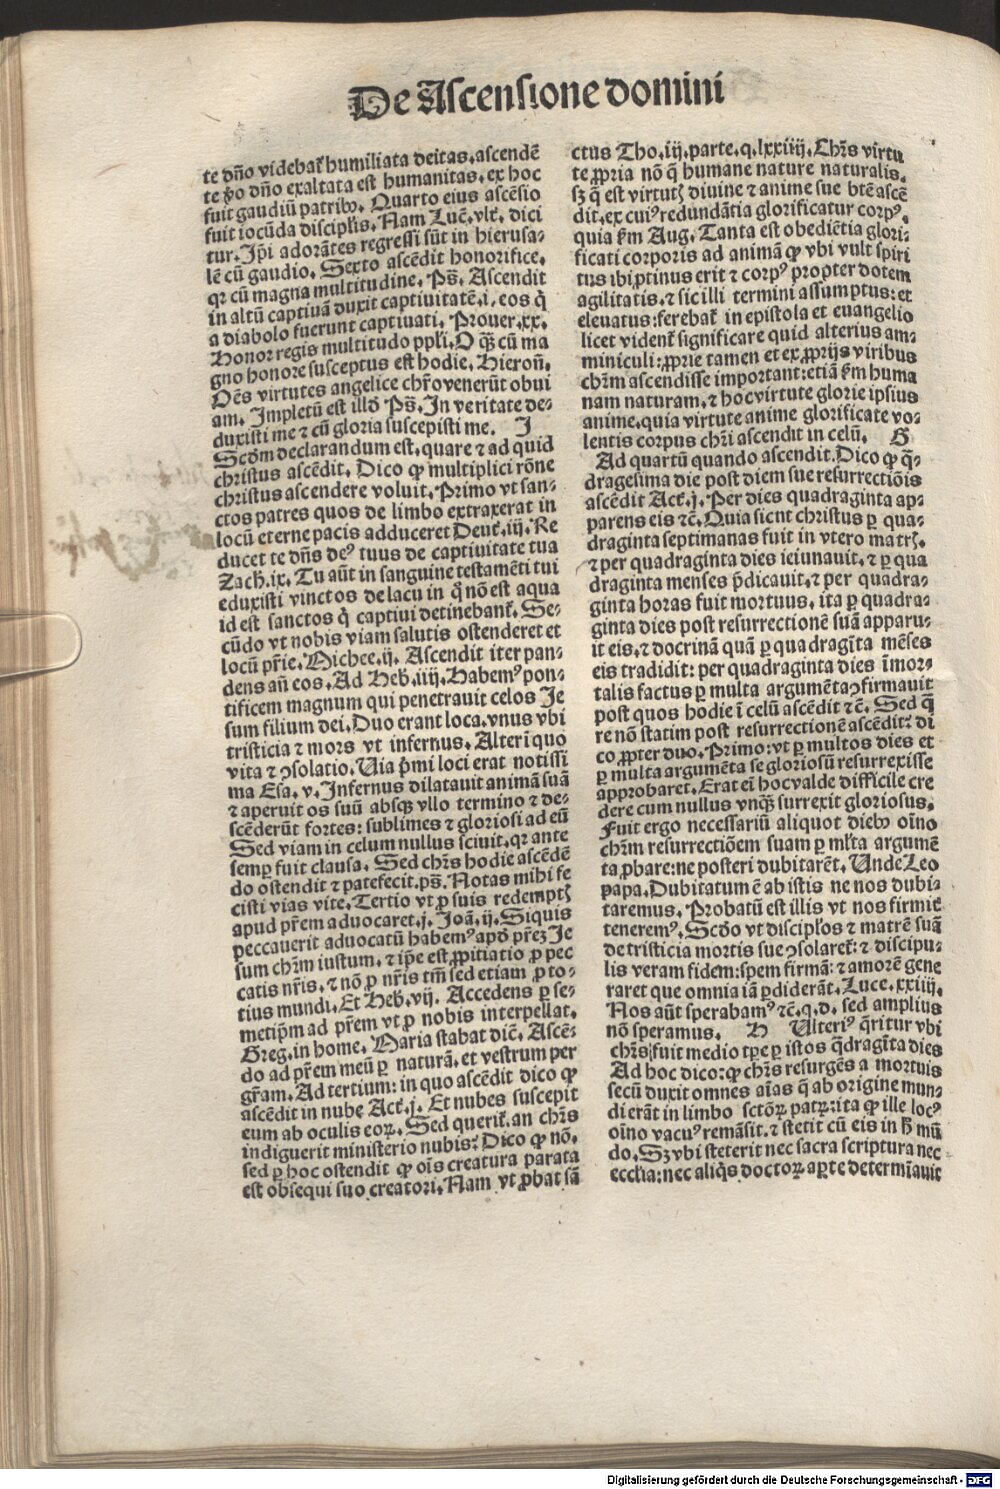 De Ascensione domini
te dño videbat᷑ humiliata deitas, ascendē
te ỽo dño exaltata est humanitas, ex hoc
fuit gaudiū patribꝰ. Quarto eius ascēsio
fuit iocūda disciplis. Nam Luce. vlt. dici
tur. Ip̄i adorātes regressi sūt in hierusa-
lē cū gaudio. Sexto ascēdit honorifice.
qꝛ cū magna multitudine. Ps̄. Ascendit
in altū captiuā duxit captiuitatē.i. eos q̇
a diabolo fuerunt captiuati. Prouer.xx.
Honor regis multitudo ppl̄i. O q̄ꝫ cū ma
gno honore susceptus est hodie. Hieron̄.
Oēs virtutes angelice chr̄o venerūt obui
am. Impletū est illd̄ Ps̄. In veritate de-
duxisti me ⁊ cū gloria suscepisti me. J
Scd̄m declarandum est, quare ⁊ ad quid
christus ascēdit. Dico ꝙ multiplici rōne
christus ascendere voluit. Primo vt san-
ctos patres quos de limbo extraxerat in
locū eterne pacis adduceret Deut᷑. iij. Re
ducet te dn̄s deꝰ tuus de captiuitate tua
Zach̄.ix. Tu aūt in sanguine testamēti tui
eduxisti vinctos de lacu in q̊ nō est aqua
id est sanctos q̇ captiui detinebant᷑. Se-
cūdo vt nobis viam salutis ostenderet et
locū pr̄ie. Michee.ij. Ascendit iter pan-
dens an̄ eos. Ad Heb̄.iiij. Habemꝰ pon-
tificem magnum qui penetrauit celos Je
sum filium dei. Duo erant loca. vnus vbi
tristicia ⁊ mors vt infernus. Alter ī quo
vita ⁊ ↄsolatio. Uia p̄mi loci erat notissi
ma Esa. v. Infernus dilatauit animā suā
⁊ aperuit os suū absqꝫ vllo termino ⁊ de-
scēderūt fortes: sublimes ⁊ gloriosi ad eū
Sed viam in celum nullus sciuit, qꝛ ante
semꝑ fuit clausa. Sed chr̄s hodie ascēdē
do ostendit ⁊ patefecit. ps̄. Notas mihi fe
cisti vias vite. Tertio vt ꝓ suis redemptꝭ
apud pr̄em aduocaret. j. Joā. ij. Siquis
peccauerit aduocatū habemꝰ apd̓ pr̄eꝫ Je
sum chr̄m iustum. ⁊ ip̄e est ꝓpitiatio ꝓ pec
catis nr̄is, ⁊ nō ꝓ nr̄is tm̄ sed etiam ꝓ to-
tius mundi. Et Heb̄. vij. Accedens ꝑ se-
metip̄m ad pr̄em vt ꝓ nobis interpellat.
Greg. in home. Maria stabat diē. Ascē-
do ad pr̄em meū ꝑ naturā. et vestrum per
gr̄am. Ad tertium: in quo ascēdit dico ꝙ
ascēdit in nube Act᷑. j. Et nubes suscepit
eum ab oculis eoꝝ. Sed querit᷑. an chr̄s
indiguerit ministerio nubis? Dico ꝙ nō.
sed ꝑ hoc ostendit ꝙ oīs creatura parata
est obsequi suo creatori. Nam vt ꝓbat sā
ctus Tho. iij. parte. q. lxxiiij. Chr̄s virtu
te ꝓpria nō q̄ humane nature naturalis.
sꝫ q̄ est virtutꝭ diuine ⁊ anime sue btē ascē
dit. ex cuiꝰ redundātia glorificatur corpꝰ.
quia ẜm Aug. Tanta est obediētia glori-
ficati corporis ad animā ꝙ vbi vult spiri
tus ibi ꝓtinus erit ⁊ corpꝰ propter dotem
agilitatis. ⁊ sic illi termini assumptus: et
eleuatus: ferebat᷑ in epistola et euangelio
licet vident᷑ significare quid alterius am-
miniculi: ꝓprie tamen et ex ꝓprijs viribus
chr̄m ascendisse important: etiā ẜm huma
nam naturam, ⁊ hoc virtute glorie ipsius
anime. quia virtute anime glorificate vo-
lentis corpus chr̄i ascendit in celū. G
Ad quartū quando ascendit. Dico ꝙ q̄-
dragesima die post diem sue resurrectiōis
ascēdit Act᷑. j. Per dies quadraginta ap-
parens eis ⁊c̄. Quia sicut christus ꝑ qua-
draginta septimanas fuit in vtero matrꝭ.
⁊ per quadraginta dies ieiunauit. ⁊ ꝑ qua
draginta menses p̄dicauit, ⁊ per quadra-
ginta horas fuit mortuus, ita ꝑ quadra-
ginta dies post resurrectionē suā apparu-
it eis, ⁊ doctrinā quā ꝑ quadragīta mēses
eis tradidit: per quadraginta dies īmor-
talis factus ꝑ multa argumēta ↄfirmauit
post quos hodie ī celū ascēdit ⁊c̄. Sed q̄
re nō statim post resurrectionē ascēdit? di
co ꝓpter duo. Primo: vt ꝑ multos dies et
ꝑ multa argumēta se gloriosū resurrexisse
approbaret. Erat eī hoc valde difficile cre
dere cum nullus vnq̄ꝫ surrexit gloriosus.
Fuit ergo necessariū aliquot diebꝰ oīno
chr̄m resurrectiōem suam ꝑ ml̄ta argumē
ta ꝓbare: ne posteri dubitarēt. Unde Leo
papa. Dubitatum ē ab istis ne nos dubi-
taremus. Probatū est illis vt nos firmiꝰ
teneremꝰ. Scd̓o vt disciplos ⁊ matrē suā
de tristicia mortis sue ↄsolaret᷑: ⁊ discipu-
lis veram fidem: spem firmā: ⁊ amorē gene
raret que omnia iā ꝑdiderāt. Luce. xxiiij.
Nos aūt sperabamꝰ ⁊c̄. q. d. sed amplius
nō speramus. H Ulteriꝰ q̄ritur vbi
chr̄s fuit medio tꝑe ꝑ istos q̄dragīta dies
Ad hoc dico: ꝙ chr̄s resurgēs a mortuis
secū duxit omnes aīas q̄ ab origine mun-
di erāt in limbo sctōꝝ patꝝ: ita ꝙ ille locꝰ
oīno vacuꝰ remāsit. ⁊ stetit cū eis in h̓ mū
do. Sꝫ vbi steterit nec sacra scriptura nec
eccl̄ia: nec aliq̇s doctoꝝ aꝑte determīauit
Digitalisierung gefördert durch die Deutsche Forschungsgemeinschaft - DFG